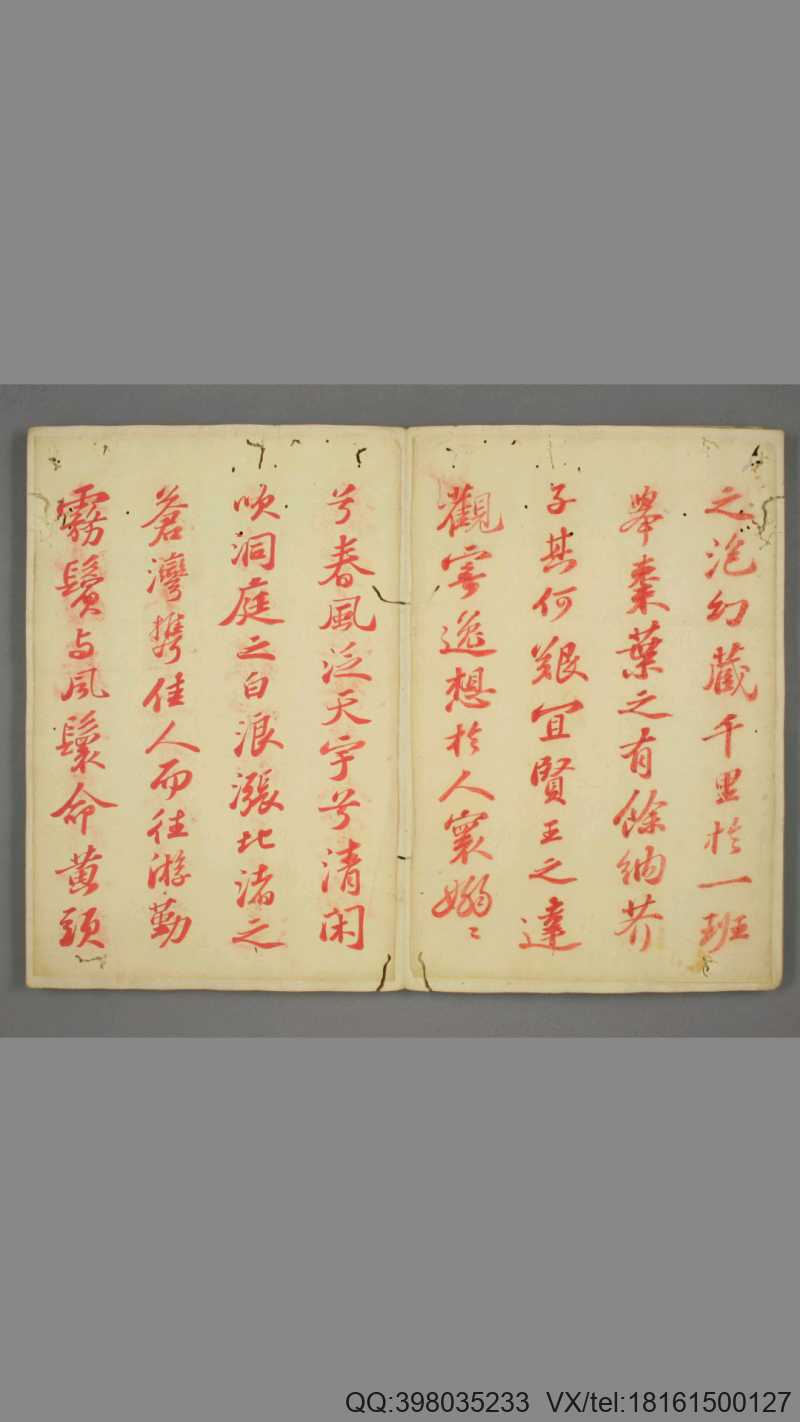 之泡幻藏千里於一班
舉棗葉之有餘納芥
子其何艱宜賢王之達
觀寄逸想於人寰嫋〻
兮春風泛天宇兮清闲
吹洞庭之白浪漲北渚之
蒼灣携佳人而往游勤
霧鬢与風鬟命黃頭
QQ:398035233 VX/tel:18161500127